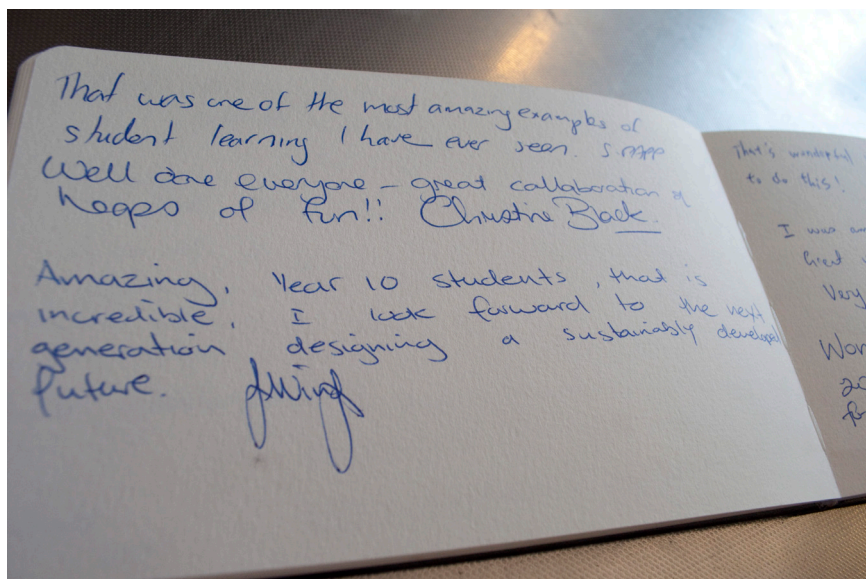 That was one of the most amazing examples of
student learning I have ever seen.
Well done everyone – great collaboration &
heaps of fun!! Christine Black.
Amazing, Year 10 students, that is
incredible. I look forward to the next
generation designing a sustainably developed
future.
That's wonderful
to do this!
I was
Great
Very